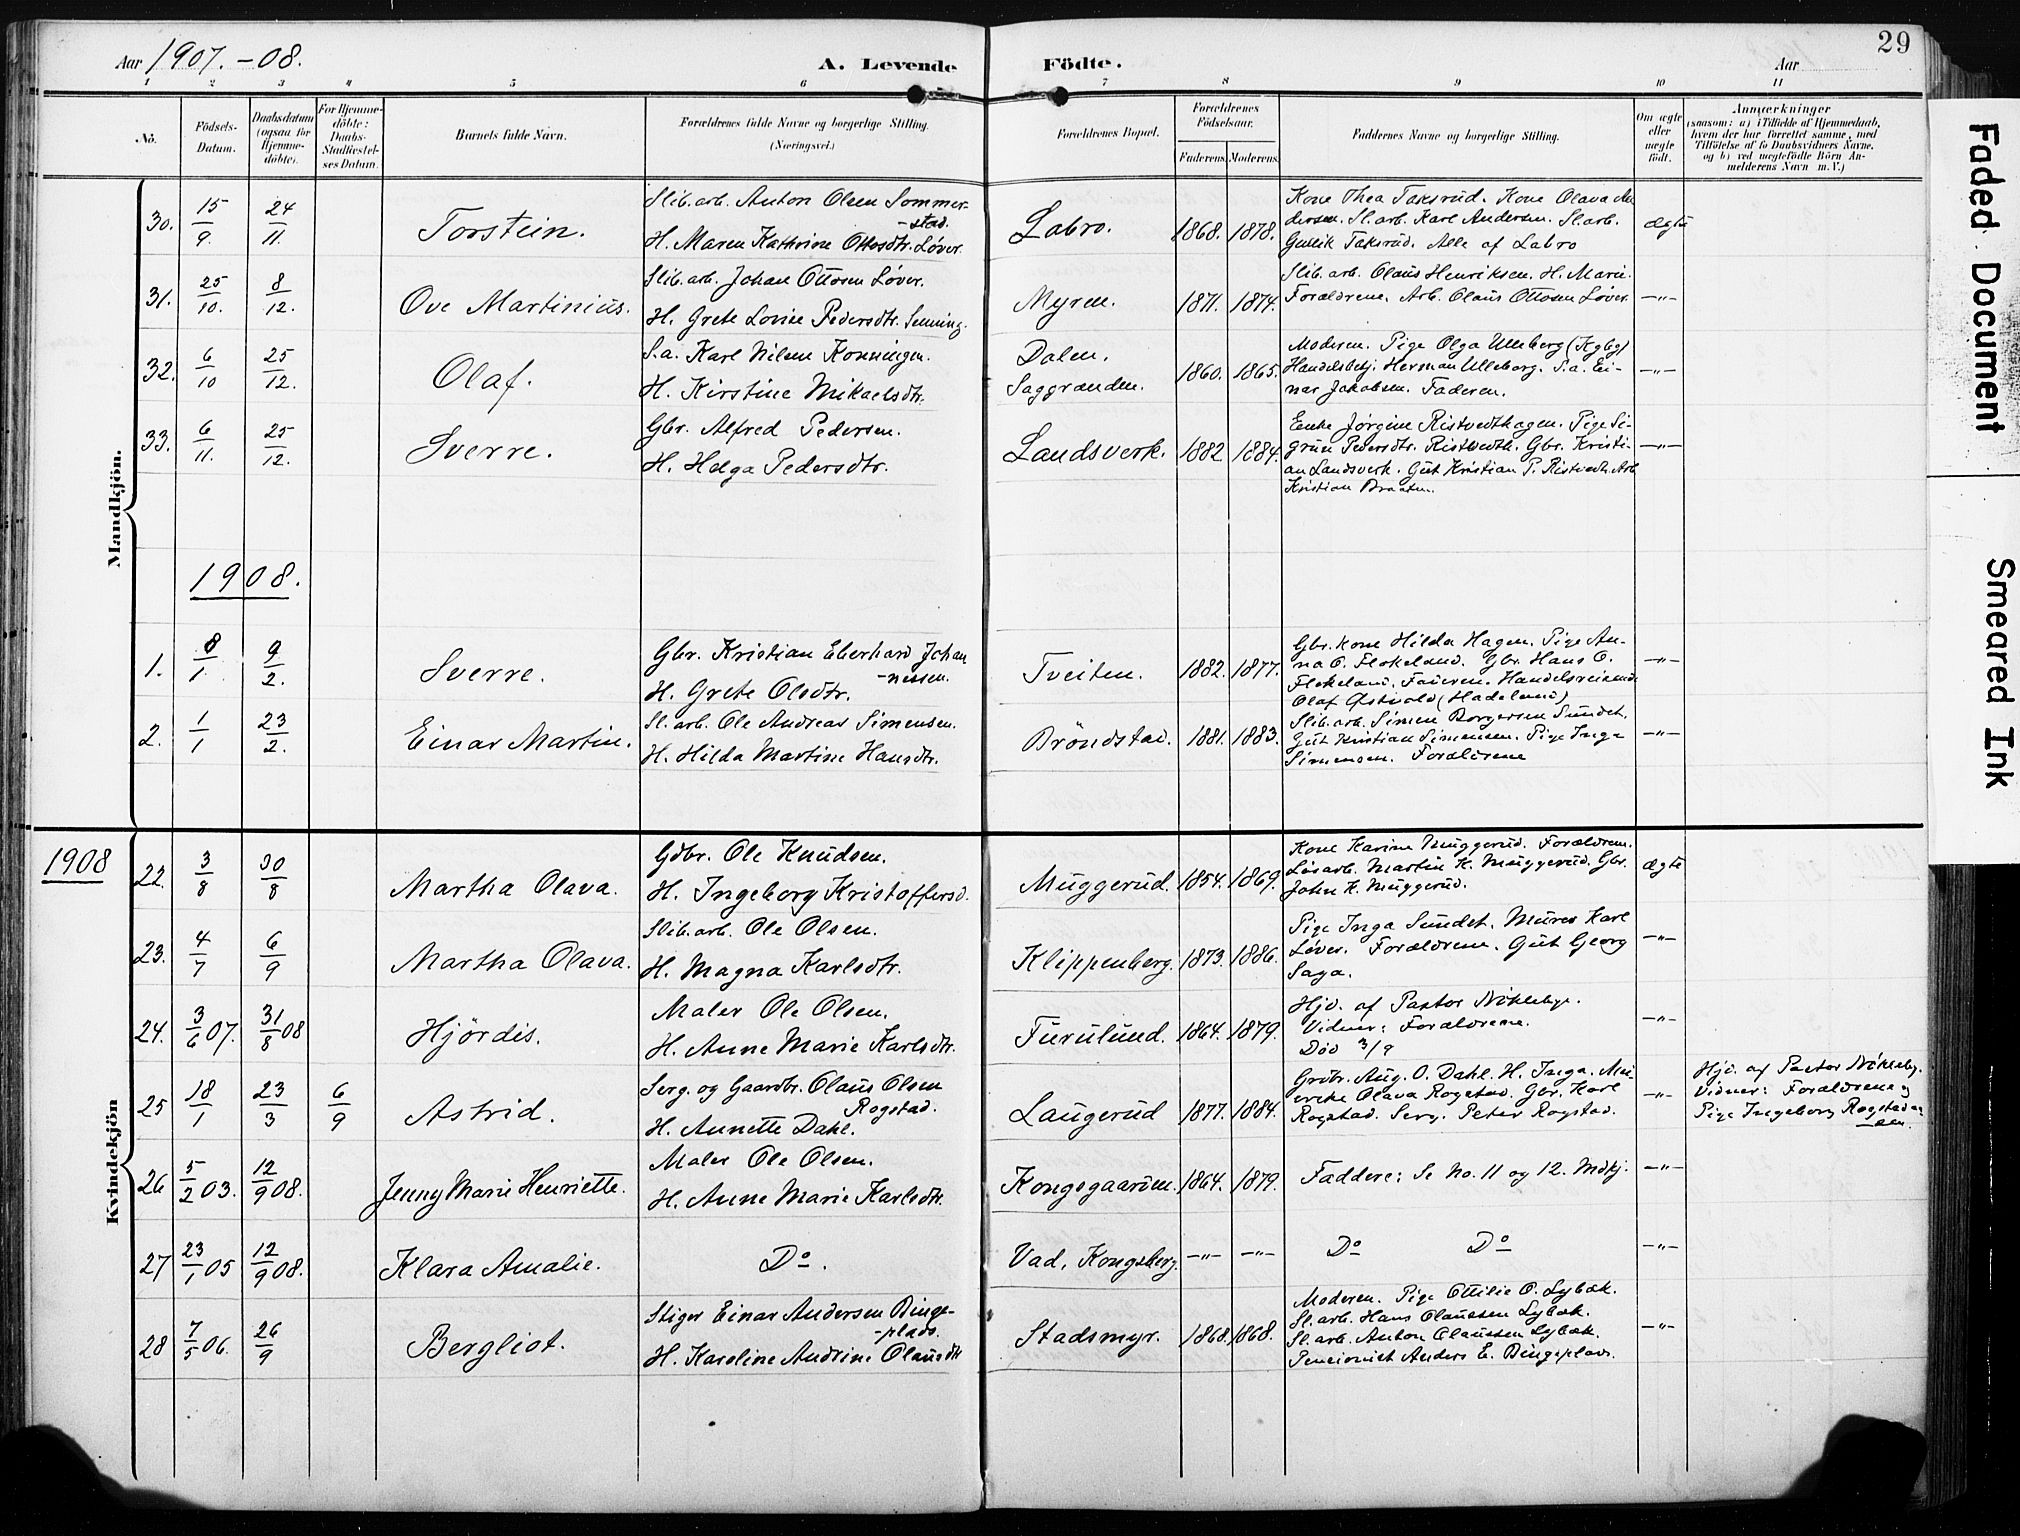 Aar 1907.-08.
A. Levende Födte.
Aar
29
1 2 3 4 5 6 7 8 9 10 11
No.
Födsels-Datum.
Daabsdatum (ogsaa for Hjemme-döbte).
For Hjemme-döbte: Daabs-Stadfæstel-ses Datum.
Barnets fulde Navn.
Forældrenes fulde Navne og borgerlige Stilling. (Næringsvei.)
Forældrenes Bopæl.
Forældrenes Födselsaar. Faderens. Moderens.
Faddernes Navne og borgerlige Stilling.
Om ægte eller uægte födt.
Anmærkninger
(saasom: a) i Tilfælde af Hjemmedaab,
hvem der har forrettet samme, med
Tilföielse af to Daabsvidners Navne,
og b) ved uægtefödte Börn An-
melderens Navn m.V.)
Mandkjön.
30. 15/9. 24/11. Torstein.
Slib.arb. Anton Olsen Sommer-
-stad.
H. Maren Kathrine Ottosdtr. Løver.
Labro. 1868. 1878.
Kone Thea Taksrud. Kone Olava An-
dersen. Sl.arb. Karl Andersen. Sl.arb.
Gullik Taksrud. Alle af Labro
ægte
31. 25/10. 8/12. Ove Martinius.
Slib.arb. Johan Ottosen Løver.
H. Grete Lovise Pedersdtr. Senning.
Myren. 1871. 1874.
Slib.arb. Olaus Henriksen. H. Marie.
Forældrene. Arb. Olaus Ottosen Løver.
—"—
32. 6/10 25/12. Olaf.
S.a. Karl Nilsen Konningen.
H. Kirstine Mikaelsdtr.
Dalen,
Saggrenden. 1860. 1865.
Moderen. Pige Olga Ulleberg (Kgbg)
Handelsbetj. Herman Ulleberg. S.a. Ei-
nar Jakobsen. Faderen.
—"—
33. 6/11. 25/12. Sverre.
Gbr. Alfred Pedersen.
H. Helga Pedersdtr.
Landsverk. 1882. 1884.
Enke Jørgine Ristvedthagen. Pige Si-
grun Pedersdtr. Ristvedth. Gbr. Kristi-
an Landsverk. Gut Kristian P. Ristvedth. Arb.
Kristian Braaten.
—"—
1908.
1. 8/1. 9/2. Sverre.
Gbr. Kristian Eberhard Johan
-nessen.
H. Grete Olsdtr.
Tveiten. 1882. 1877.
Gbr. kone Hilda Hagen. Pige An-
na O. Flokeland. Gbr. Hans O.
Flokeland. Faderen. Handelsreisende
Olaf Østvold (Hadeland)
—"—
2. 1/1 23/2. Einar Martin.
Sl.arb. Ole Andreas Simensen.
H. Hilda Martine Hansdtr.
Bröndstad. 1881. 1883.
Slib.arb. Simen Borgersen Sundet.
Gut Kristian Simensen. Pige Inga
Simensen. Forældrene
—"—
Kvindekjön
1908
22. 3/8 30/8 Martha Olava.
Gdbr. Ole Knudsen.
H. Ingeborg Kristoffersd.
Muggerud. 1854. 1869.
Kone Karine Muggerud. Forældrene.
Løsarb. Martin K. Muggerud. Gbr.
John K. Muggerud.
ægte
23. 4/7 6/9 Martha Olava.
Slib.arb. Ole Olsen.
H. Magna Karlsdtr.
Klippenberg. 1873. 1886.
Pige Inga Sundet. Murer Karl
Løver. Forældrene. Gut Georg
Saga.
—"—
24. 3/6 07. 31/8 08 Hjördis.
Maler Ole Olsen.
H. Anne Marie Karlsdtr.
Furulund. 1864. 1879.
Hjd. af Pastor Nökleby.
Vidner: Forældrene.
Död 3/9
—"—
25 18/1 23/3 6/9 Astrid.
Serg. og Gaardbr. Olaus Olsen
Rogstad.
H. Annette Dahl.
Laugerud 1877. 1884.
Grdbr. Aug. O. Dahl. H. Inga.
Olava Rogstad. Gbr. Karl
Rogstad. Serg. Peter Rogstad.
—"—
Hjd. af Pastor Nökleby.
Vidner: Forældrene og
Pige Ingeborg Rogstad
26 5/2 03. 12/9 08. Jenny Marie Henriette.
Maler Ole Olsen.
H. Anne Marie Karlsdtr.
Kongsgaarden. 1864. 1879.
Faddere: Se No. 11 og 12. Mdkj.
—"—
27 23/1 05 12/9 08. Klara Amalie.
Do.
Vad, Kongsberg. —"— —"—
Do Do
—"—
28 7/5 06. 26/9 Bergliot.
Stiger Einar Andersen Binge-
-plads.
H. Karoline Andrine Olausdtr
Stadsmyr. 1868. 1868.
Moderen. Pige Ottilie O. Lybæk.
Sl.arb. Hans Olaussen Lybæk.
Sl.arb. Anton Olaussen Lybæk.
Pensionist Anders E. Bingeplads.
—"—
Faded Document
Smeared Ink